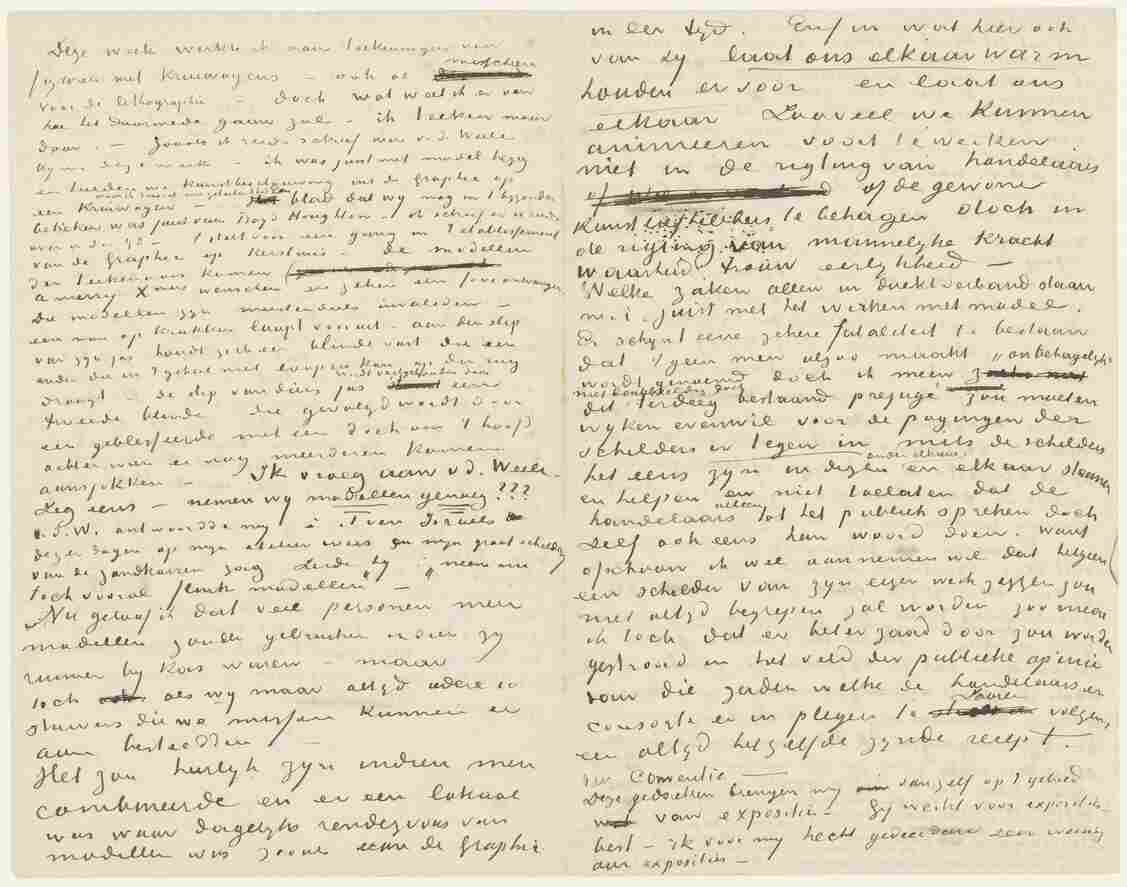 Deze week werkte ik aan teekeningen van
figuren met kruiwagens – ook al misschien
voor de lithographie – doch wat weet ik er van
hoe het daarmede gaan zal – ik teeken maar
door. – Zooals ik reeds schreef was v.d. Weele
by me deze week – ik was juist met model bezig
en hielden we kunstbeschouwing uit de Graphic op
een kruiwagen – blad dat wy nog in 't byzonder
bekeken was juist van Boyd Houghton – ik schreef er U reeds
over – 't stelt voor een gang in 't etablissement
van de Graphic op Kerstmis – De modellen
der teekenaars komen
a merry Xmas wenschen en zeker een fooi ontvangen
Die modellen zyn meerendeels invaliden –
een man op krukken loopt vooruit – aan den slip
van zyn jas houdt zich een blinde vast die een
ander die in 't geheel niet loopen kan op den rug
draagt – de slip van diens jas wordt vastgehouden door een
tweede blinde die gevolgd wordt door
een geblesseerde met een doek om 't hoofd
achter wien er nog meerderen komen
aansjokken – Ik vroeg aan v.d. Weele
Zeg eens – nemen wy modellen genoeg???
v.d.W. antwoordde my – toen Israels
dezer dagen op myn atelier was en myn groot schildery
van de zandkarren zag zeide hy „neem nu
toch vooral flink modellen” –
Nu geloof ik dat veel personen meer
modellen zouden gebruiken indien zy
ruimer by kas waren – maar
toch als wy maar altyd iedere
stuiver die we missen kunnen er
aan besteedden –
Het zou heerlyk zyn indien men
combineerde en er een lokaal
was waar dagelyks rendezvous van
modellen was zooals aan de Graphic
in der tyd. Enfin wat hier ook
van zy laat ons elkaar warm
houden er voor en laat ons
elkaar zooveel we kunnen
animeeren voort te werken
niet in de rigting van handelaars
of de gewone
kunstliefhebbers te behagen doch in
de rigting van mannelyke kracht
waarheid trouw eerlykheid –
Welke zaken allen in direkt verband staan
m.i. juist met het werken met model.
Er schynt eene zekere fataliteit te bestaan
dat 't geen men alzoo maakt „onbehagelyk”
wordt genoemd doch ik meen
dit terdeeg bestaand prejugé zou moeten
wyken evenwel voor de pogingen der
schilders er tegen in mits de schilders
het eens zyn onder elkaar en elkaar steunen
en helpen en niet toelaten dat de
handelaars alleen tot het publiek spreken doch
zelf ook eens hun woord doen. Want
ofschoon ik wel aannemen wil dat hetgeen
een schilder van zyn eigen werk zeggen zou
niet altyd begrepen zal worden zoo meen
ik toch dat er beter zaad door zou worden
gestrooid in het veld der publieke opinie
dan die zaden welke de handelaars en
consorte er in plegen te zaaien volgens
een altyd hetzelfde zynde recept.
der Conventie –
Deze gedachten brengen my van zelf op 't gebied
van expositie – Gy werkt voor exposities
best – ik voor my hecht gedecideerd zeer weinig
aan exposities –